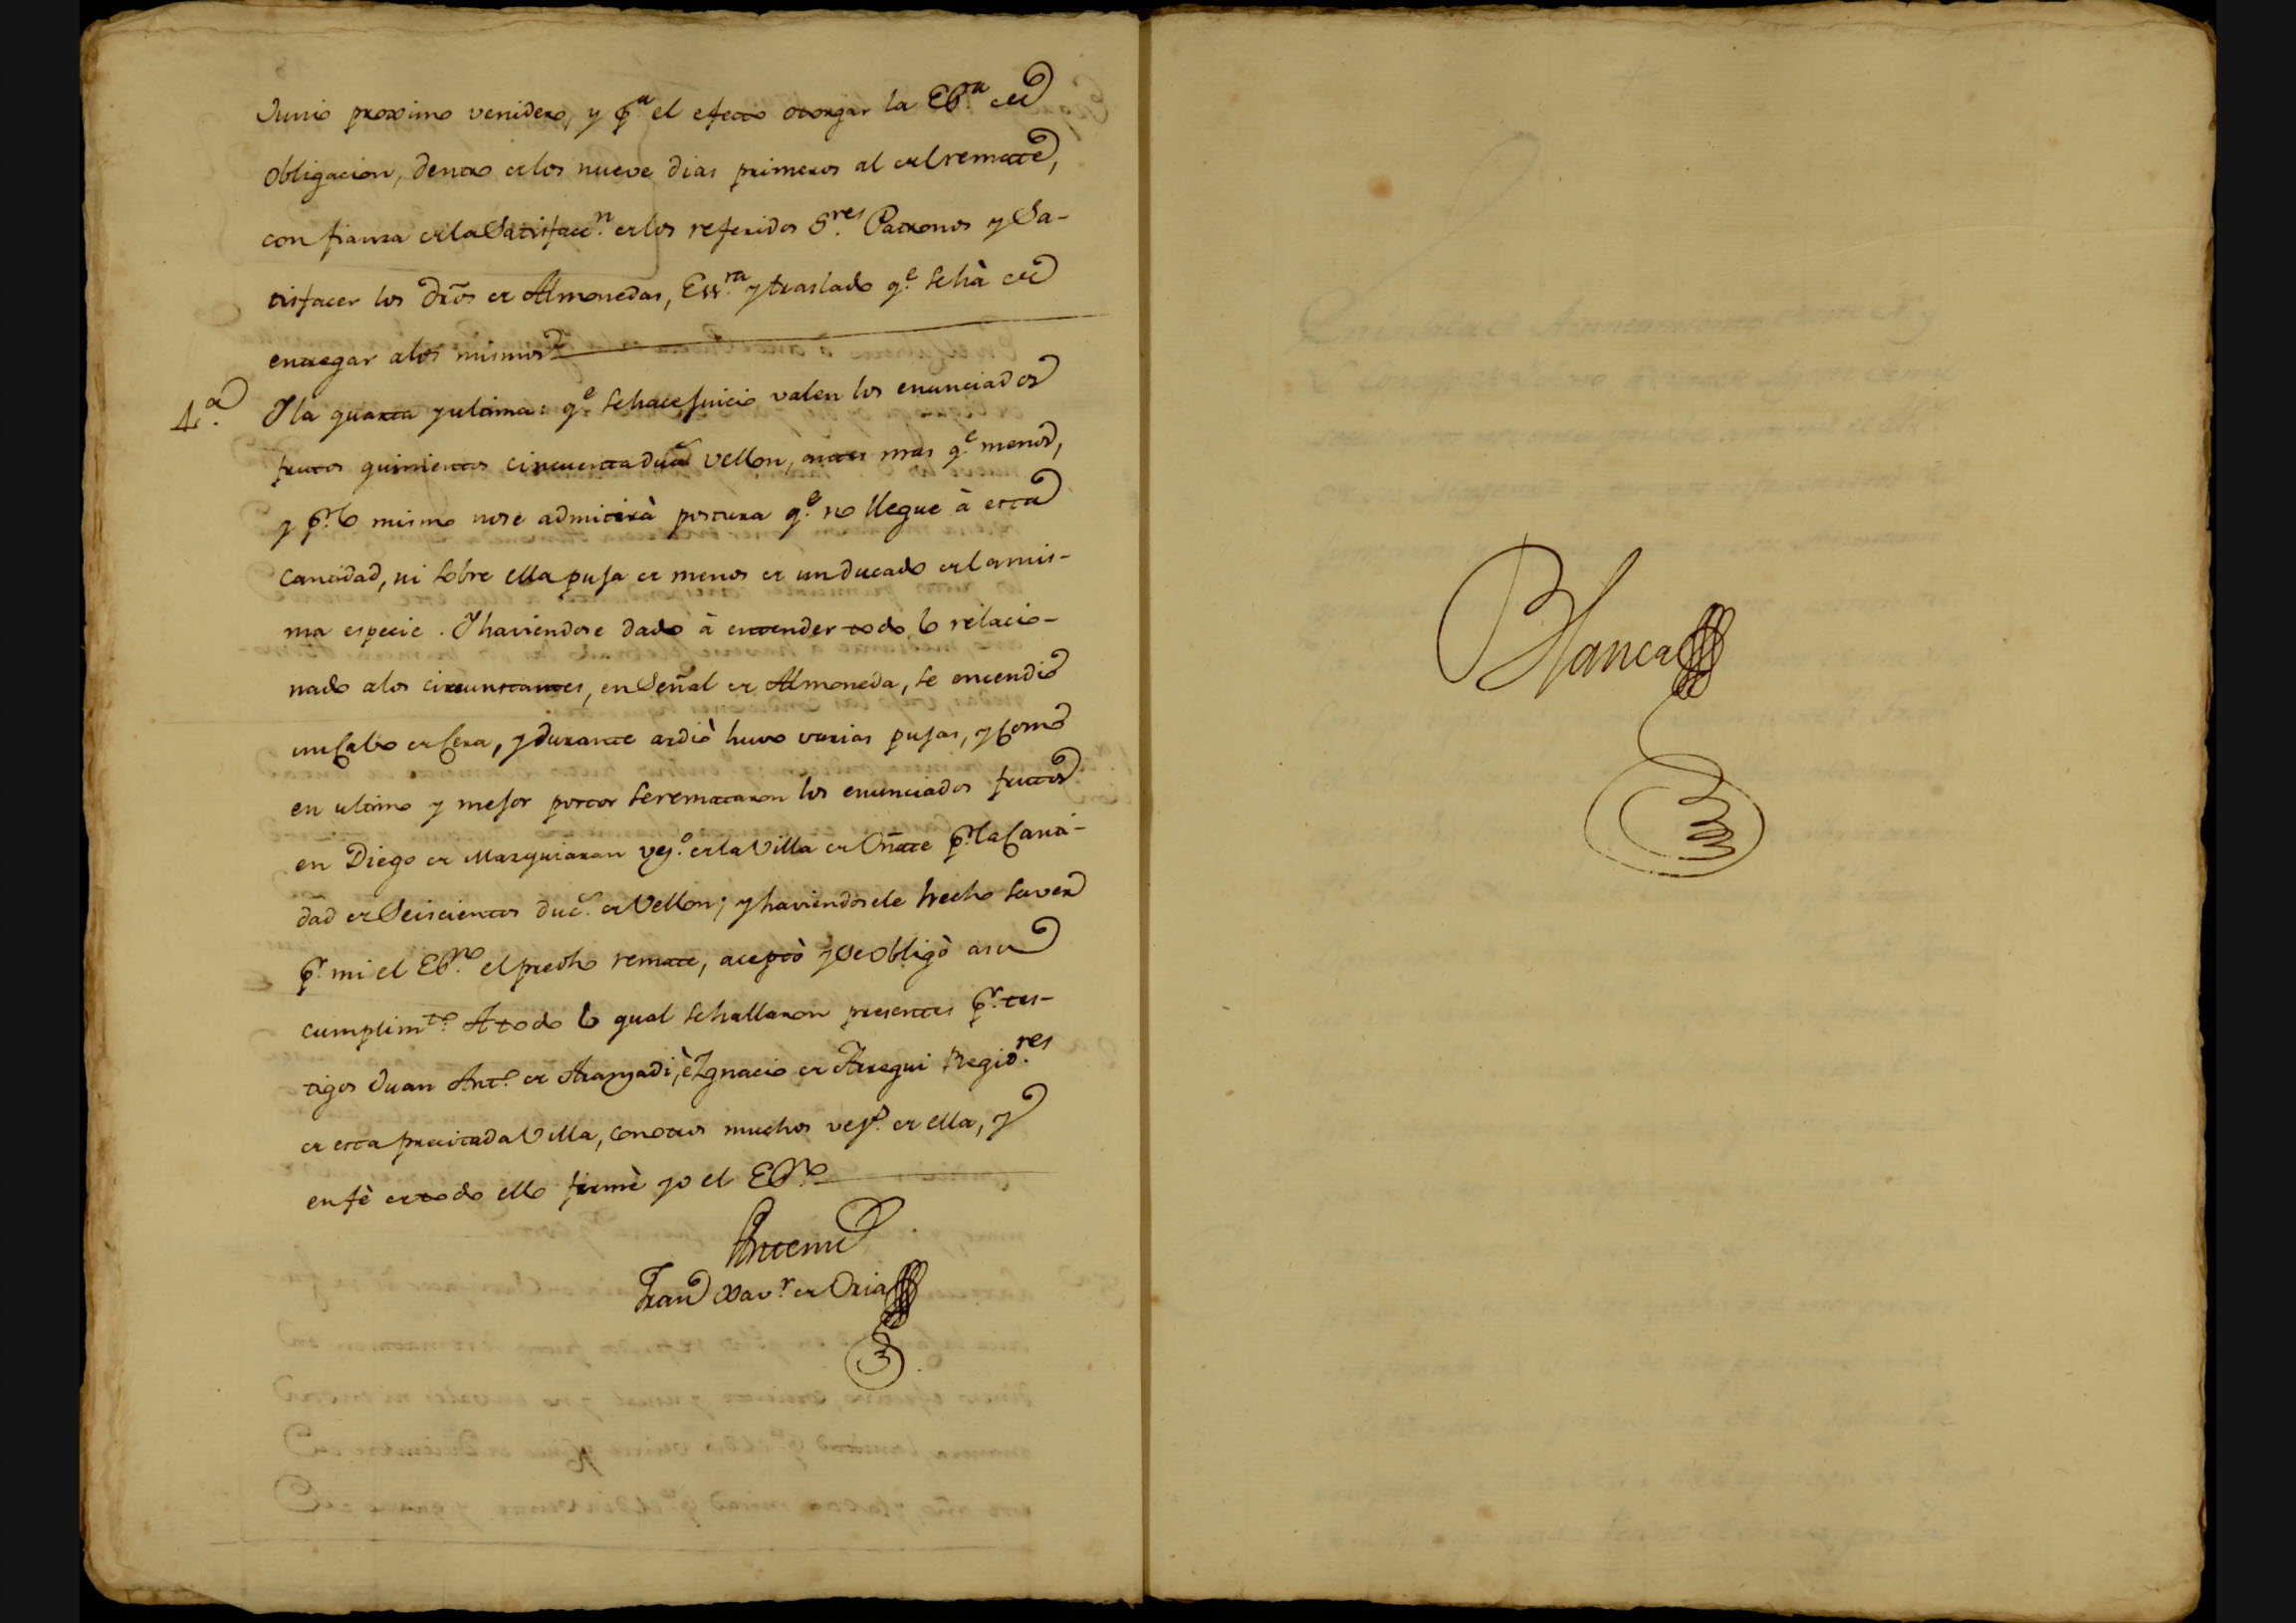 Junio proximo venidero, y p.ª el efecto otorgar la Es.ra de
obligacion, dentro de los nueve dias primeros al del remate,
con fianza de la Satisfacc.n de los referidos S.res Patronos y Sa-
tisfacer los dr̃os de Almonedas, Ess.ra y traslado q.e se hà de
entregar a los mismos
4.ª Y la quarta y ultima: q.e se hace Juicio valen los enunciados
frutos quinientos cincuenta duc.s vellon, antes mas q.e menos,
y p.r lo mismo no se admitirà postura q.e no llegue à esta
cantidad, ni sobre ella puja de menos de un ducado de la mis-
ma especie. Y haviendose dado à entender todo lo relacio-
nado a los circunstantes, en Señal de Almoneda, se encendiò
un Cabo de Cera, y durante ardiò huvo varias pujas, y como
en ultimo y mejor postor se remataron los enunciados frutos
en Diego de Marquiaran vez.o de la Villa de Oñate p.r la Canti-
dad de Seiscientos duc.s de Vellon; y haviendosele hecho saver
p.r mi el Es.no el predho remate, aceptò y se obligò a su
cumplim.to A todo lo qual se hallaron presentes p.r tes-
tigos Juan Ant.o de Aranzadi, è Ignacio de Arregui Regid.res
de esta precitada Villa, con otros muchos vez.s de ella, y
en fè de todo ello firmè yo el Es.no
Ante mi
Fran.co Xav.r de Oria
Blanca